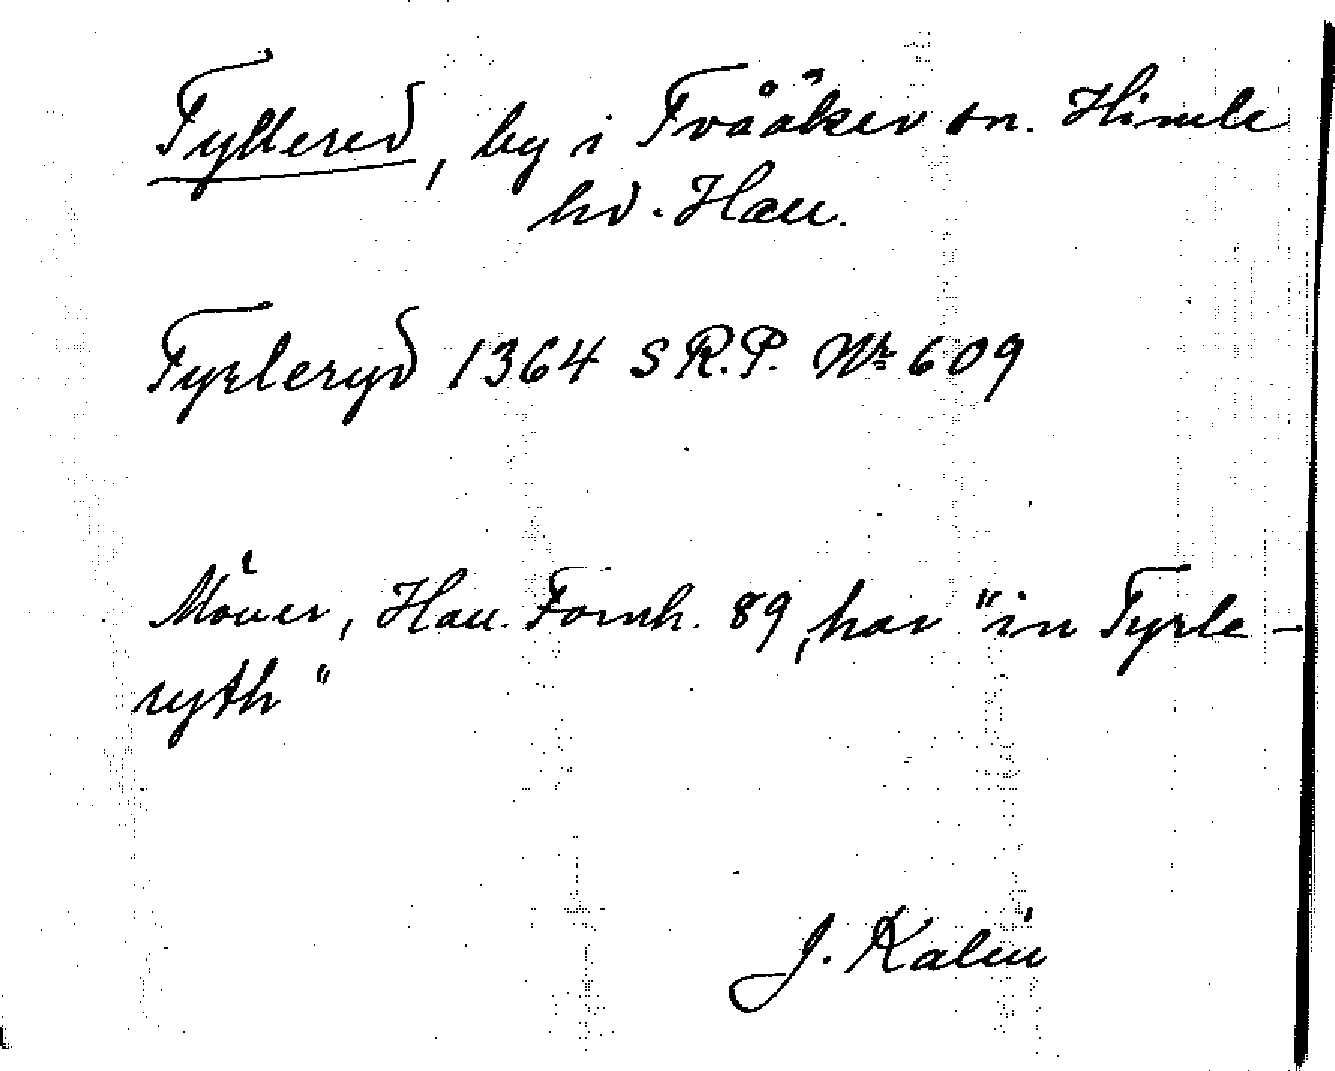 Tyllered, by i Tvååker sn. Himle
hd. Hall.
Tyrleryd 1364 S R.P. Nr 609
Möller, Hall. Fornh. 89, har "in Tyrle-
ryth"
J. Kalén